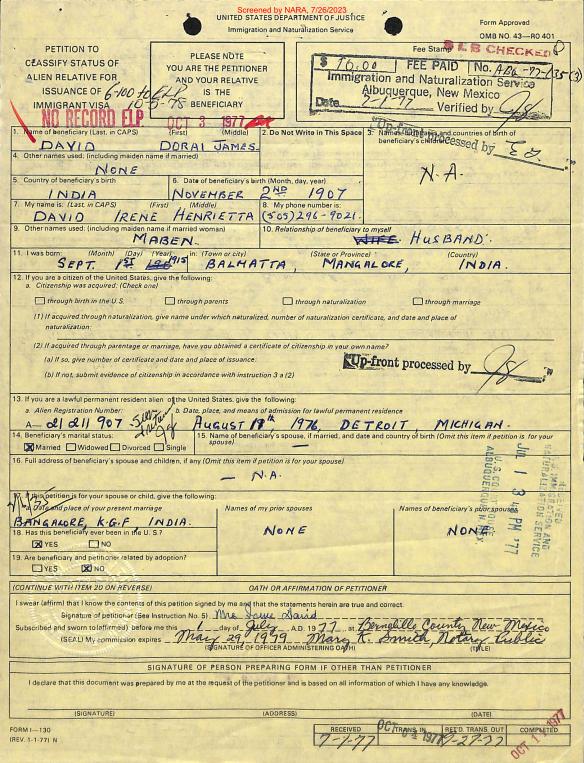 Screened by NARA, 7/26/2023
UNITED STATES DEPARTMENT OF JUSTICE
Immigration and Naturalization Service
Form Approved
OMB NO. 43—RO 401
PETITION TO
CLASSIFY STATUS OF
ALIEN RELATIVE FOR
ISSUANCE OF
IMMIGRANT VISA
10-5-78
PLEASE NOTE
YOU ARE THE PETITIONER
AND YOUR RELATIVE
IS THE
BENEFICIARY
Fee Stamp
CHECKED
$ 10.00 FEE PAID No.
Immigration and Naturalization Service
Albuquerque, New Mexico
Date 7-1-77 Verified by
NO RECORD ELP OCT 3 1977
Up-front processed by
1. Name of beneficiary (Last, in CAPS) (First) (Middle)
DAVID DORAI JAMES
2. Do Not Write in This Space
3. Names and countries of birth of
N.A.
4. Other names used: (including maiden name if married)
NONE
5. Country of beneficiary's birth
INDIA
6. Date of beneficiary's birth (Month, day, year)
NOVEMBER 2ND 1907
7. My name is: (Last, in CAPS) (First) (Middle)
DAVID IRENE HENRIETTA
8. My phone number is:
(505) 296-9021.
9. Other names used: (including maiden name if married woman)
MABEN
10. Relationship of beneficiary to myself
WIFE. HUSBAND.
11. I was born: (Month) (Day) (Year) in: (Town or city) (State or Province) (Country)
SEPT. 1ST 1915 BALMATTA, MANGALORE, INDIA.
12. If you are a citizen of the United States, give the following:
a. Citizenship was acquired: (Check one)
through birth in the U.S. through parents through naturalization through marriage
(1) If acquired through naturalization, give name under which naturalized, number of naturalization certificate, and date and place of
naturalization:
(2) If acquired through parentage or marriage, have you obtained a certificate of citizenship in your own name?
(a) If so, give number of certificate and date and place of issuance:
(b) If not, submit evidence of citizenship in accordance with instruction 3 a (2)
Up-front processed by
13. If you are a lawful permanent resident alien of the United States, give the following:
a. Alien Registration Number: b. Date, place, and means of admission for lawful permanent residence
A— 21 211 907 AUGUST 1976, DETROIT, MICHIGAN.
14. Beneficiary's marital status:
X Married Widowed Divorced Single
15. Name of spouse, if married, and date and country of birth (Omit this item if petition is for spouse)
16. Full address of beneficiary's spouse and children, if any (Omit this item if petition is for your spouse)
— N.A.
17. If this petition is for your spouse or child, give the following:
a. Date and place of your present marriage
BANGALORE, K.G.F INDIA.
Names of my prior spouses
NONE
Names of beneficiary's prior spouses
NONE
18. Has this beneficiary ever been in the U.S.?
X YES NO
19. Are beneficiary and petitioner related by adoption?
YES X NO
RECEIVED
IMMIGRATION AND
NATURALIZATION SERVICE
JUL 1 3 PM '77
U.S. COURTHOUSE
ALBUQUERQUE, N. MEX
(CONTINUE WITH ITEM 20 ON REVERSE) OATH OR AFFIRMATION OF PETITIONER
I swear (affirm) that I know the contents of this petition signed by me and that the statements herein are true and correct.
Signature of petitioner (See Instruction No. 5) Mrs Irene David
Subscribed and sworn to (affirmed) before me this 1 day of July, A.D. 1977 at Bernalillo County, New Mexico
(SEAL) My commission expires May 29, 1979 Mary K. Smith, Notary Public
(SIGNATURE OF OFFICER ADMINISTERING OATH) (TITLE)
SIGNATURE OF PERSON PREPARING FORM IF OTHER THAN PETITIONER
I declare that this document was prepared by me at the request of the petitioner and is based on all information of which I have any knowledge.
(SIGNATURE) (ADDRESS) (DATE)
FORM I—130
(REV. 1-1-77) N
RECEIVED TRANS. IN RET'D. TRANS OUT COMPLETED
7-1-77 OCT 1977 9-27-77 OCT 1977